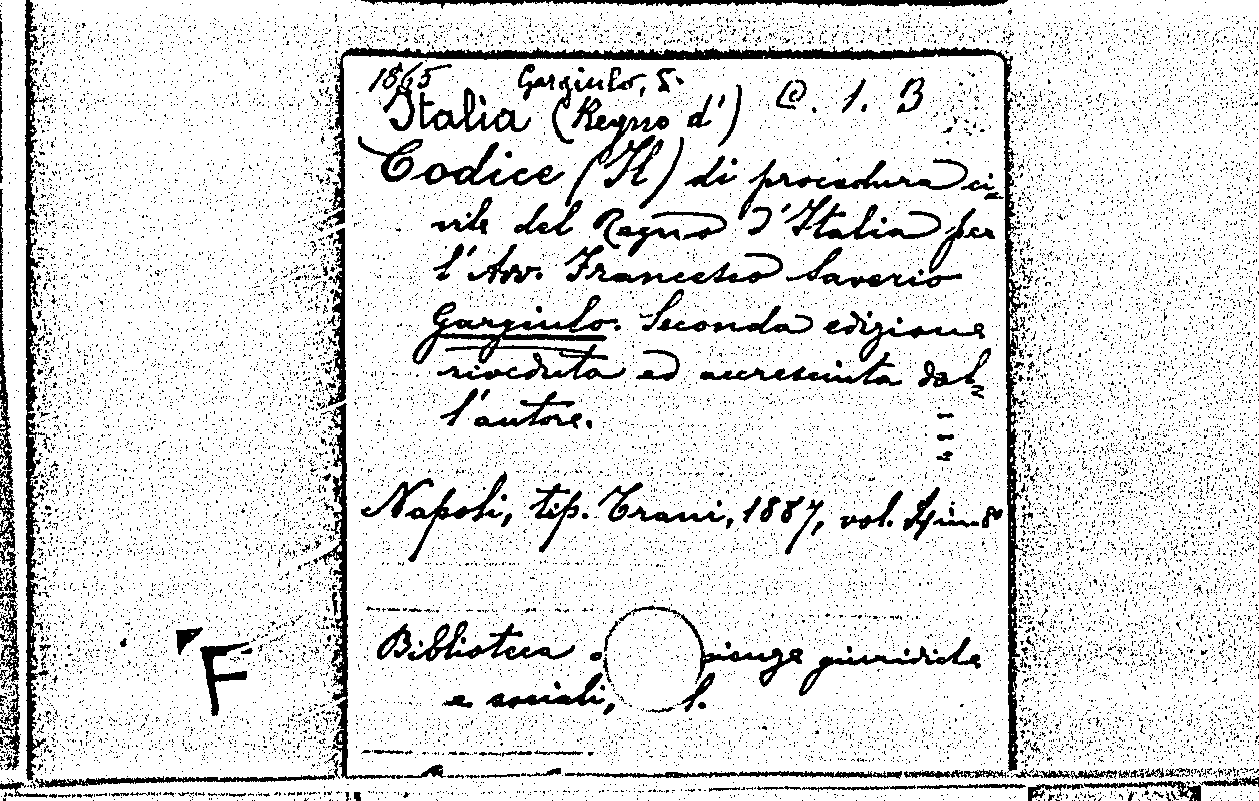 1865 Gargiulo, S. @. 1. B
Italia (Regno d')
Codice (Il) di procedura ci-
vile del Regno d'Italia per
l'Avv. Francesco Saverio
Gargiulo. Seconda edizione
riveduta ed accresciuta dal-
l'autore.
Napoli, tip. Trani, 1887, vol. in 8°
Biblioteca giuridiche
e sociali,
F